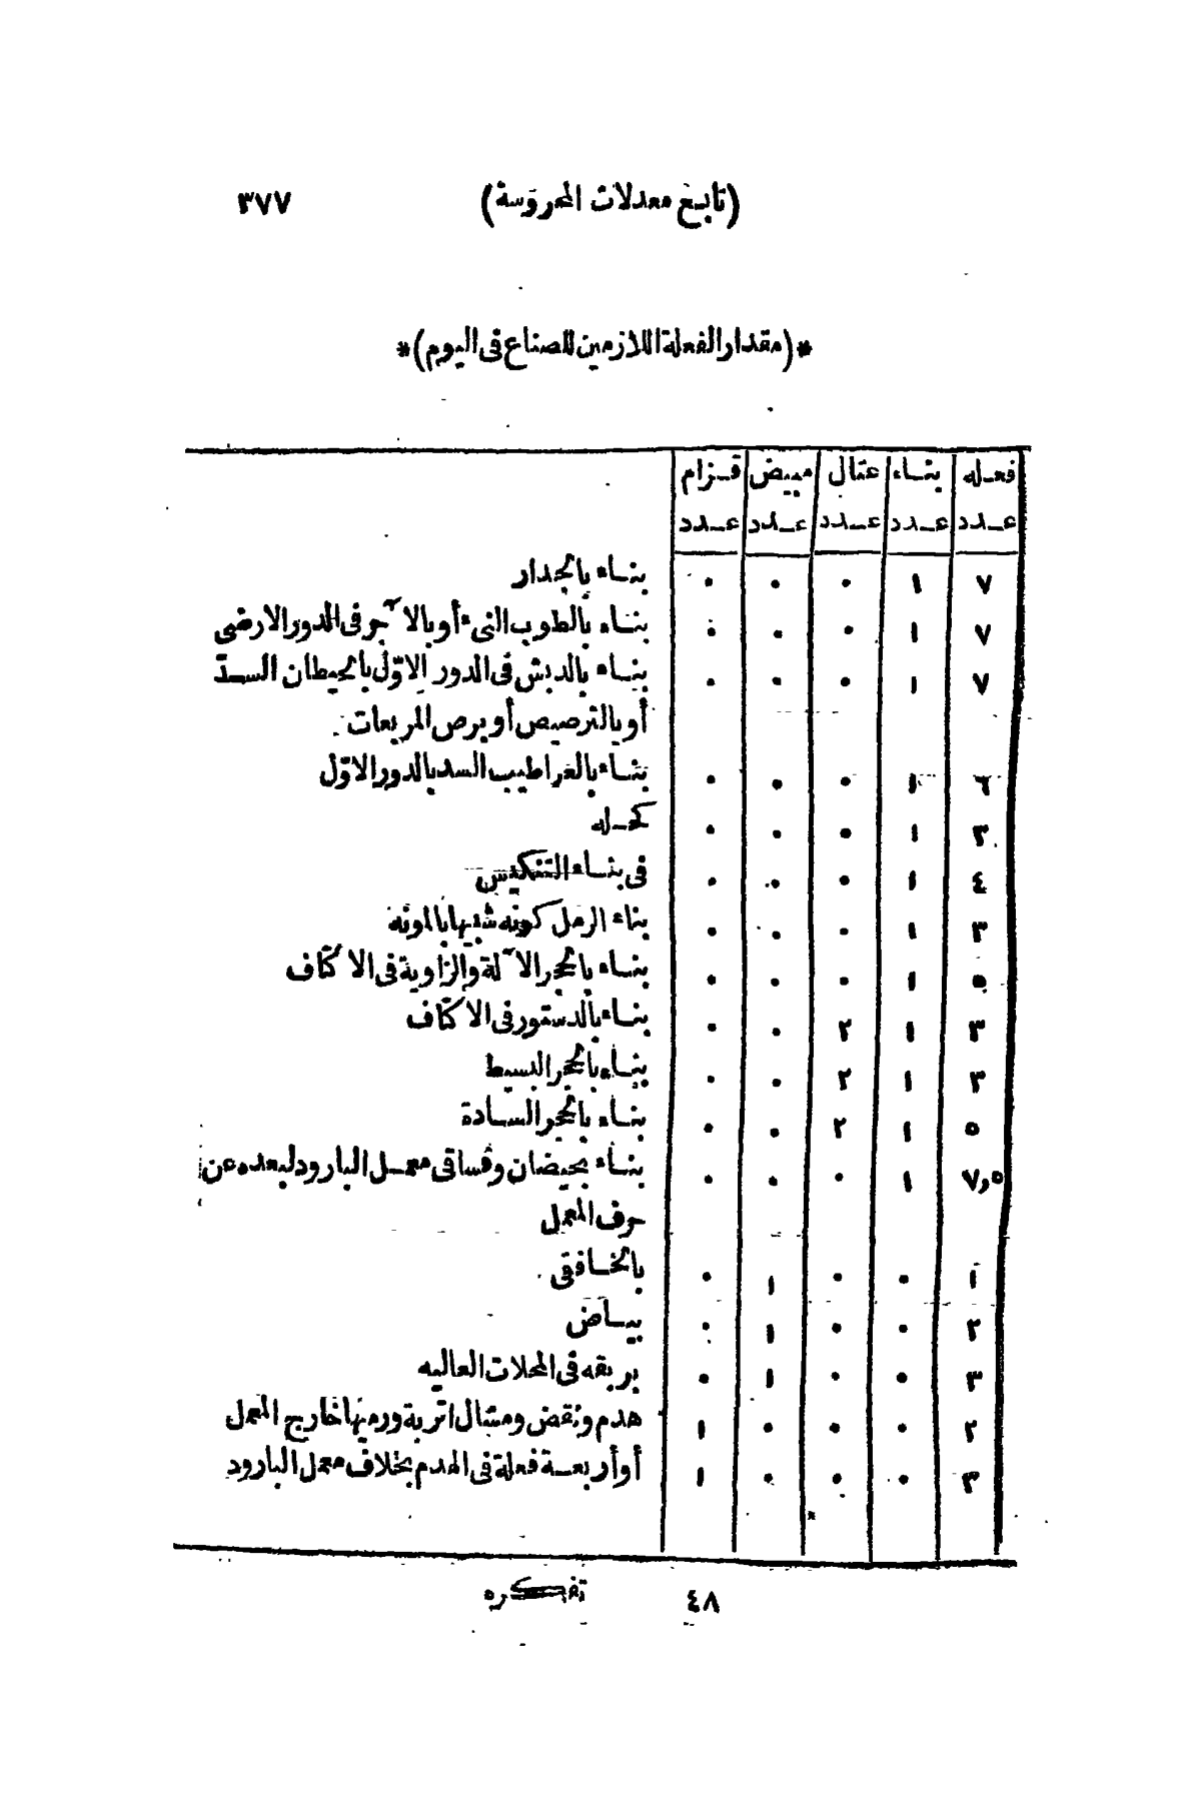 (تابع معدلات المحروسة) ٣٧٧
*(مقدار الفعلة اللازمين للصناع فى اليوم)*
فعله بناء عتال مبيض قزام
عدد عدد عدد عدد عدد
٧ ١ ٠ ٠ ٠ بناء بالجدار
٧ ١ ٠ ٠ ٠ بناء بالطوب النىء أو بالآجر فى الدور الارضى
٧ ١ ٠ ٠ ٠ بناء بالدبش فى الدور الاوّل بالحيطان السدّ
أو بالترصيص أو برص المربعات
٦ ١ ٠ ٠ ٠ بناء بالغراطيب السد بالدور الاوّل
٣ ١ ٠ ٠ ٠ كحله
٤ ١ ٠ ٠ ٠ فى بناء التنكيس
٣ ١ ٠ ٠ ٠ بناء الرمل كونه شبيها بالمونه
٥ ١ ٠ ٠ ٠ بناء بالحجر الآلة والزاوية فى الاكتاف
٣ ١ ٢ ٠ ٠ بناء بالدستور فى الاكتاف
٣ ١ ٢ ٠ ٠ بناء بالحجر البسيط
٥ ١ ٢ ٠ ٠ بناء بالحجر السادة
٧٫٥ ١ ٠ ٠ ٠ بناء بحيضان وفساقى معمل البارود لبعده عن
حرف المعمل
١ ٠ ٠ ١ ٠ بالخافقى
٢ ٠ ٠ ١ ٠ بياض
٣ ٠ ٠ ١ ٠ بربقه فى المحلات العاليه
٢ ٠ ٠ ٠ ١ هدم ونقض ومشال اتربة ورميها خارج المعمل
٣ ٠ ٠ ٠ ١ أو أربعة فعلة فى الهدم بخلاف معمل البارود
٤٨ تفكره